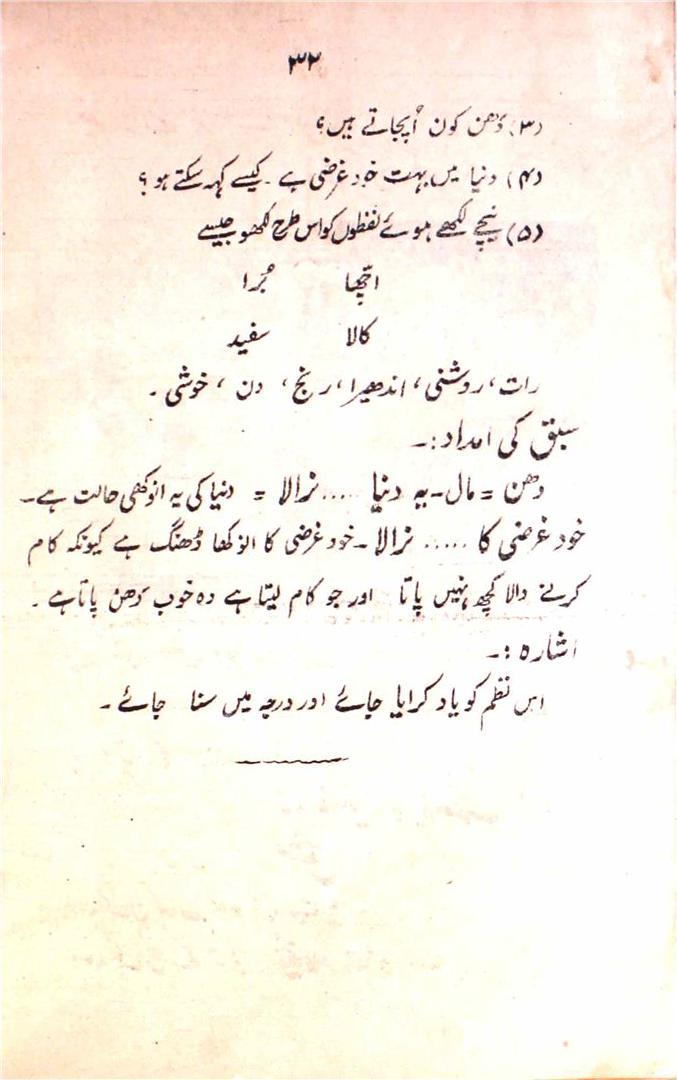 ۳۲
(۳) دھن کون اُپجاتے ہیں؟
(۴) دنیا میں بہت خود غرضی ہے ۔ کیسے کہہ سکتے ہو؟
(۵) نیچے لکھے ہوئے لفظوں کو اس طرح لکھو جیسے
اچّھا بُرا
کالا سفید
رات، روشنی، اندھیرا، رنج، دن، خوشی ۔
سبق کی امداد:۔
دھن = مال ۔ یہ دنیا ..... نرالا = دنیا کی یہ انوکھی حالت ہے ۔
خود غرضی کا ..... نرالا ۔ خود غرضی کا انوکھا ڈھنگ ہے کیونکہ کام
کرنے والا کچھ نہیں پاتا اور جو کام لیتا ہے وہ خوب دھن پاتا ہے ۔
اشارہ :۔
اس نظم کو یاد کرایا جائے اور درجہ میں سنا جائے ۔